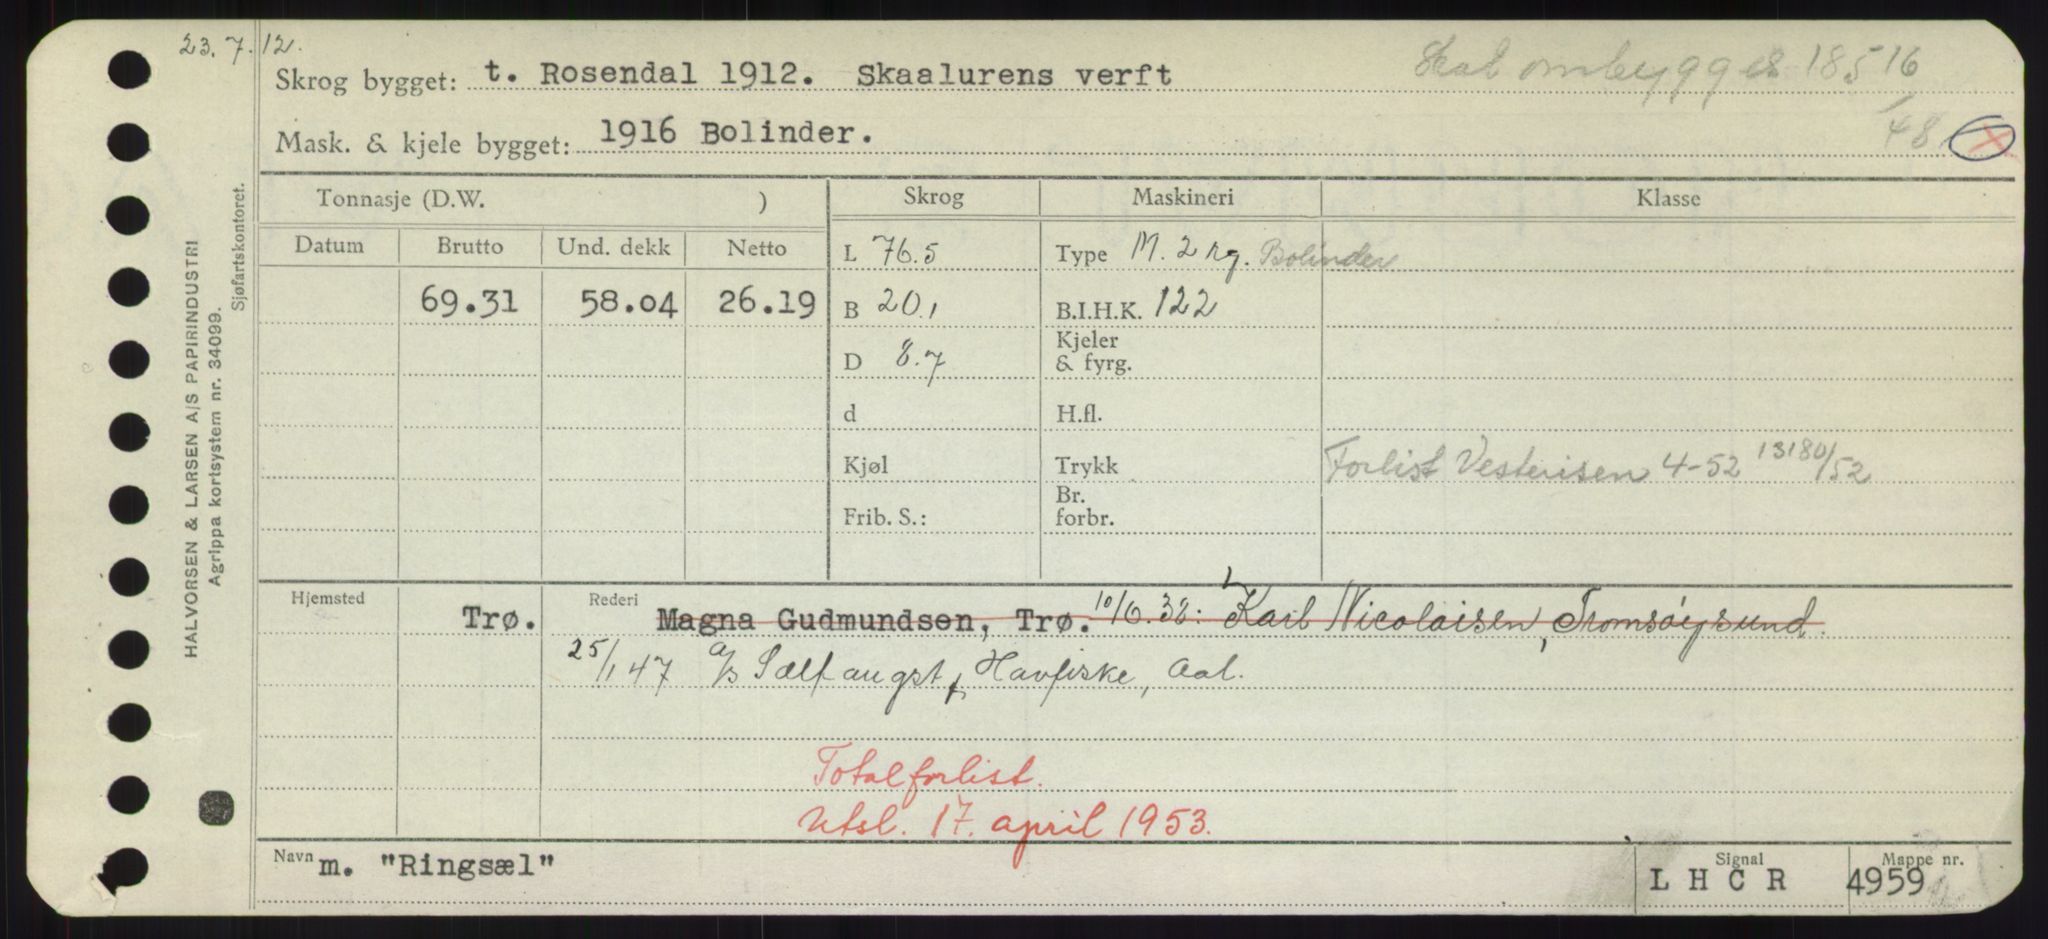 23.7.12.
Skrog bygget: t. Rosendal 1912. Skaalurens verft Skal ombygges 18516/48
Mask. & kjele bygget: 1916 Bolinder.
Tonnasje (D.W. ) Skrog Maskineri Klasse
Datum Brutto Und. dekk Netto
69.31 58.04 26.19
L 76.5
B 20,1
D 8.7
d
Kjøl
Frib. S.:
Type M. 2 Bolinder
B.I.H.K. 122
Kjeler
& fyrg.
H.fl.
Trykk
Br.
forbr.
Forlist Vesterisen 4-52 13180/52
Hjemsted Trø. Rederi Magna Gudmundsen, Trø. 10/6.38: Karl Nicolaisen, Tromsøysund.
25/1 47 A/S Selfangst & Havfiske, Aal.
Totalforlist.
Utsl. 17. april 1953.
Navn m. "Ringsæl" Signal LHCR Mappe nr. 4959
HALVORSEN & LARSEN A/S PAPIRINDUSTRI
Agrippa kortsystem nr. 34099.
Sjøfartskontoret.